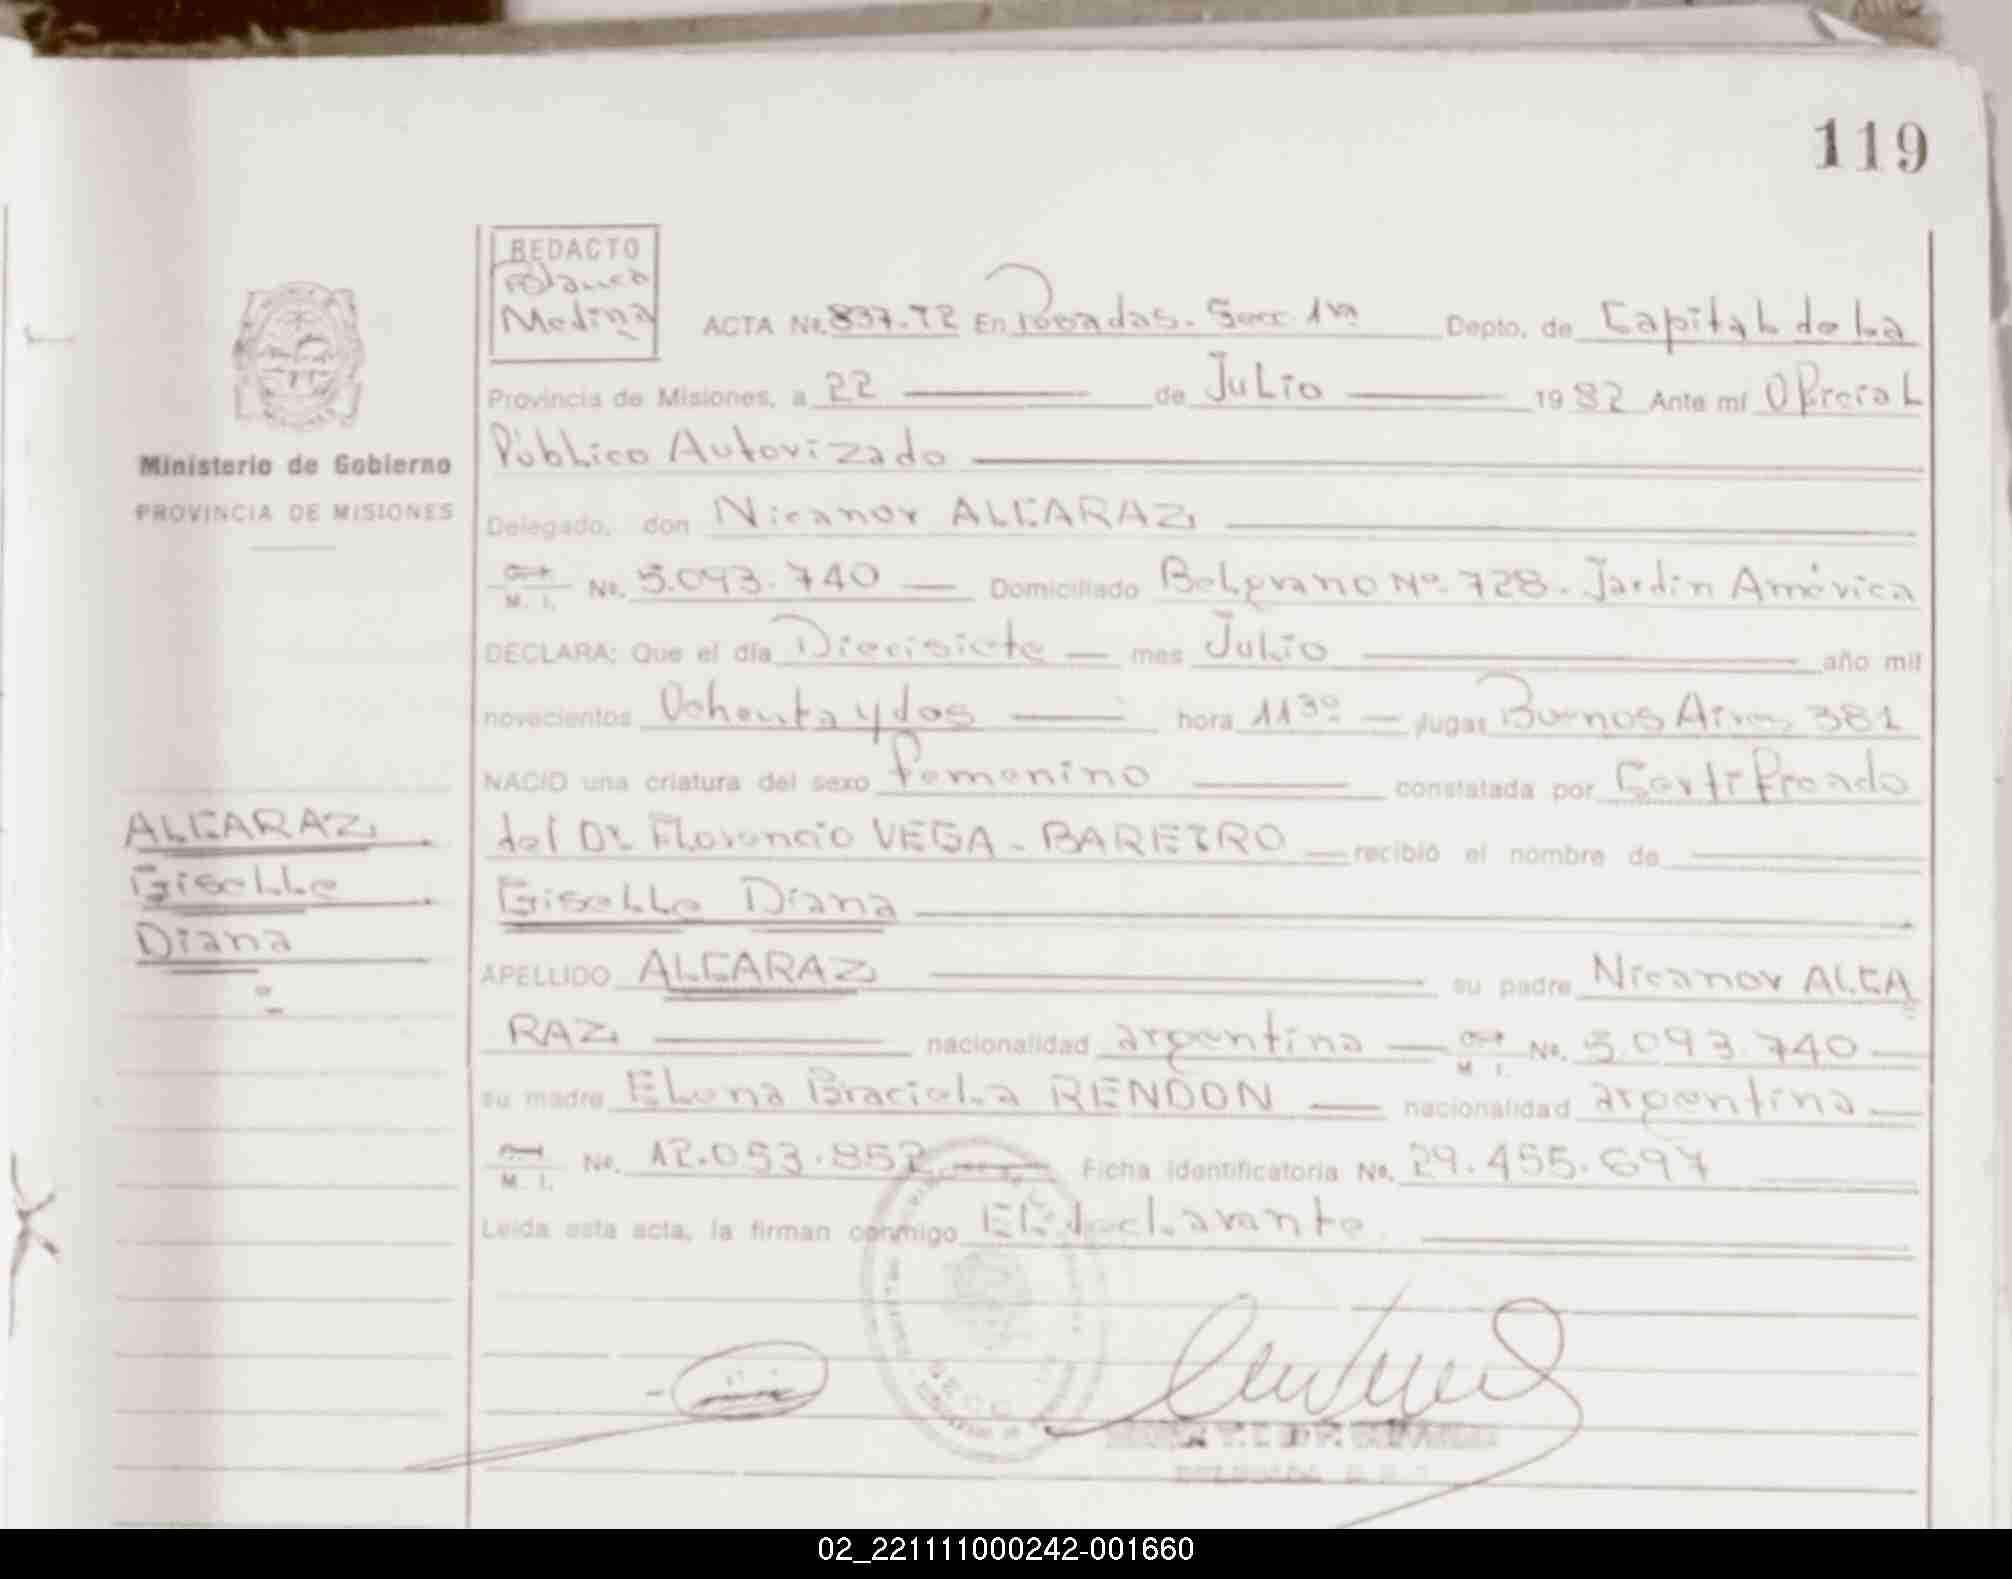 119
REDACTO
Blanca
Medina
ACTA No. 837-T2 En Posadas. Secc 1ra Depto. de Capital de la
Provincia de Misiones, a 22 de Julio 1982 Ante mí Oficial
Público Autorizado
Ministerio de Gobierno
PROVINCIA DE MISIONES
Delegado, don Nicanor ALCARAZ
M. I. No. 5.093.740 Domiciliado Belgrano Nº 728. Jardín América
DECLARA: Que el día Diecisiete mes Julio año mil
novecientos Ochenta y dos hora 11 30 lugar Buenos Aires 381
NACIO una criatura del sexo femenino constatada por Certificado
ALCARAZ
Giselle
Diana
del Dr. Florencio VEGA - BAREIRO recibió el nombre de
Giselle Diana
APELLIDO ALCARAZ su padre Nicanor ALCA
RAZ nacionalidad argentina M. I. No. 5.093.740
su madre Elena Graciela RENDON nacionalidad argentina
M. I. No. 12.053.852 Ficha identificatoria No. 29.455.697
Leida esta acta, la firman conmigo El declarante
02_221111000242-001660